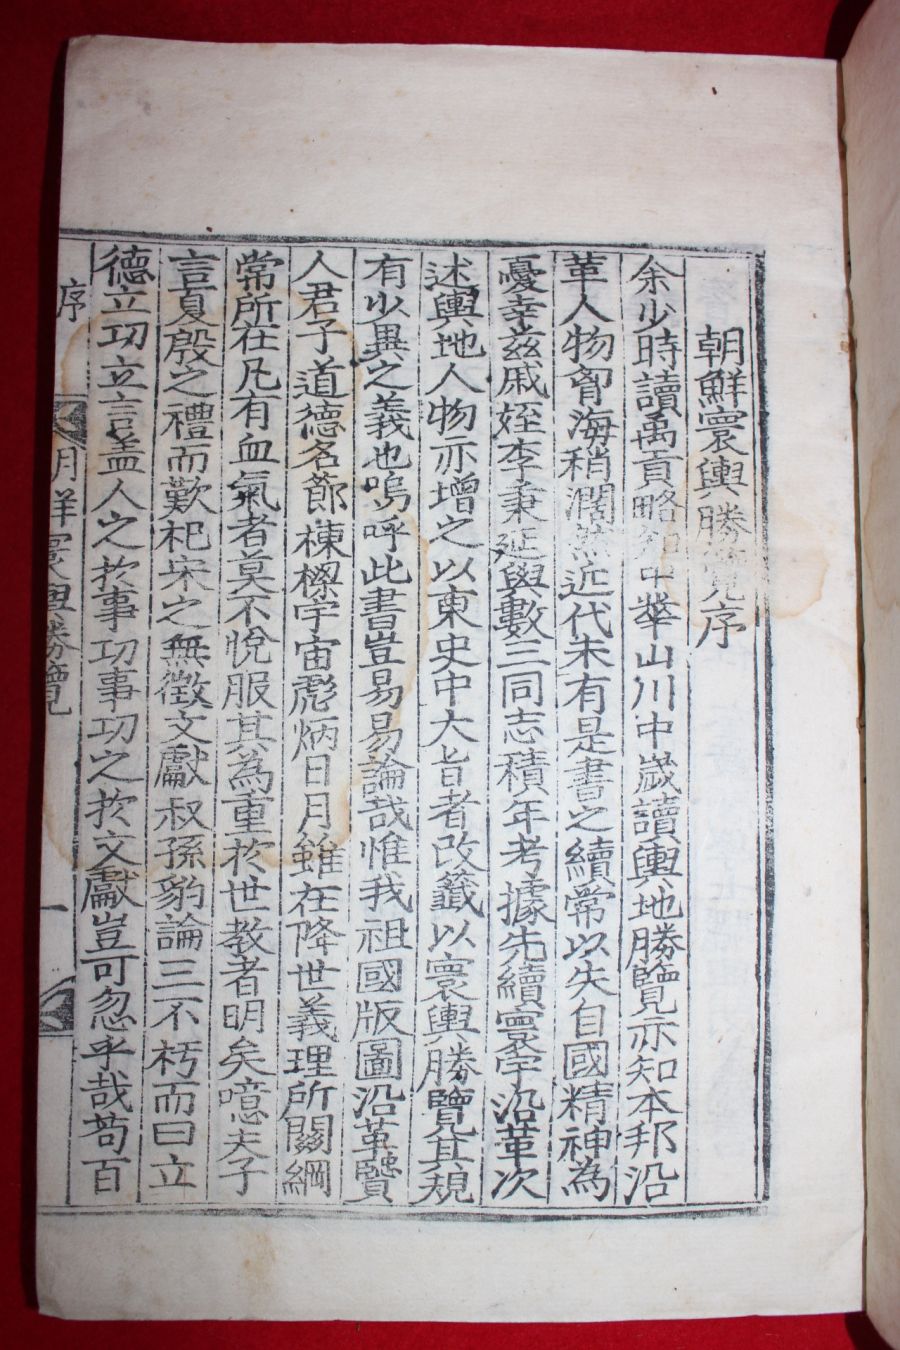 朝鮮寰輿勝覽序
余少時讀禹貢略知中華山川中歲讀輿地勝覽亦知本邦沿
革人物奫海稍濶然近代未有是書之續常以失自國精神為
憂幸玆戚姪李秉延與數三同志積年考據先續寰宇沿革次
述輿地人物亦增之以東史中大旨者改籤以寰輿勝覽其規
有少異之義也嗚呼此書豈易易論哉惟我祖國版圖沿革賢
人君子道德名節棟樑宇宙彪炳日月雖在降世義理所關綱
常所在凡有血氣者莫不悅服其為重於世教者明矣噫夫子
言夏殷之禮而歎杞宋之無徵文獻叔孫豹論三不朽而曰立
德立功立言盖人之於事功事功之於文獻豈可忽乎哉苟百
序 朝鮮寰輿勝覽 一